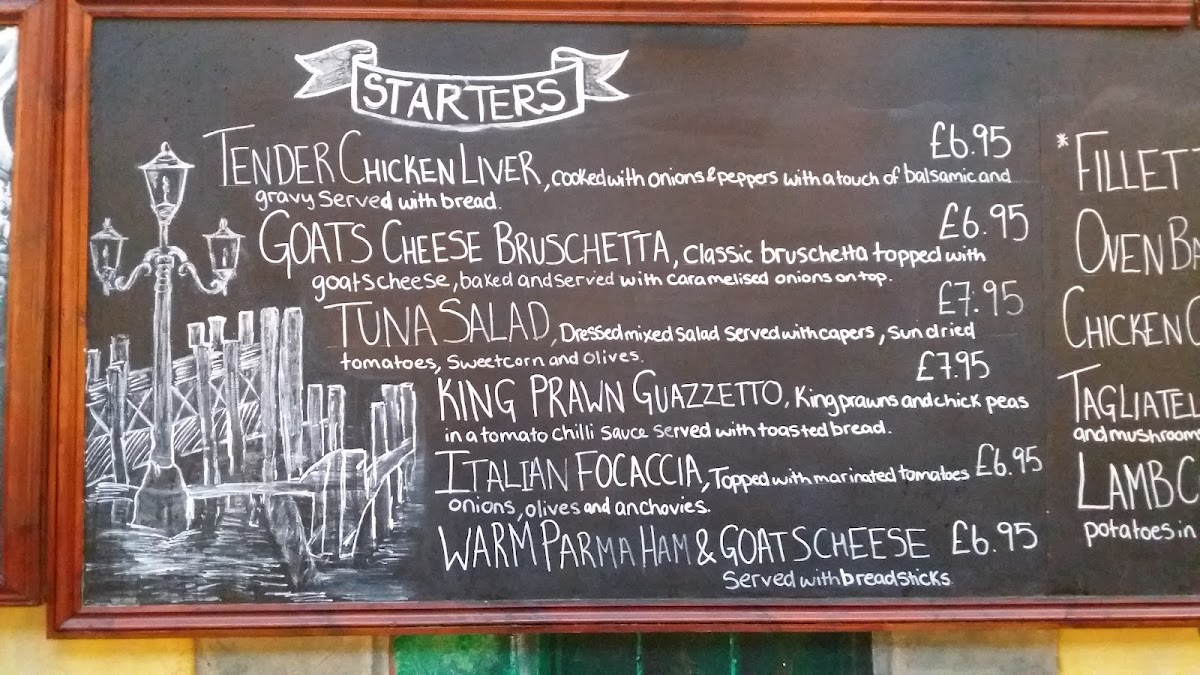 STARTERS
£6.95
TENDER CHICKEN LIVER, cooked with onions & peppers with a touch of balsamic and
gravy served with bread.
£6.95
GOATS CHEESE BRUSCHETTA, Classic bruschetta topped with
goats cheese, baked and served with caramelised onions on top.
£7.95
TUNA SALAD, Dressed mixed salad served with capers, sundried
tomatoes, Sweetcorn and olives.
£7.95
KING PRAWN GUAZZETTO, King prawns and chick peas
in a tomato chilli sauce served with toasted bread.
ITALIAN FOCACCIA, Topped with marinated tomatoes £6.95
onions, olives and anchovies.
WARM PARMA HAM & GOATS CHEESE £6.95
Served with breadsticks.
* FILLET
OVEN BA
CHICKEN
TAGLIATEL
and mushrooms
LAMB
potatoes in